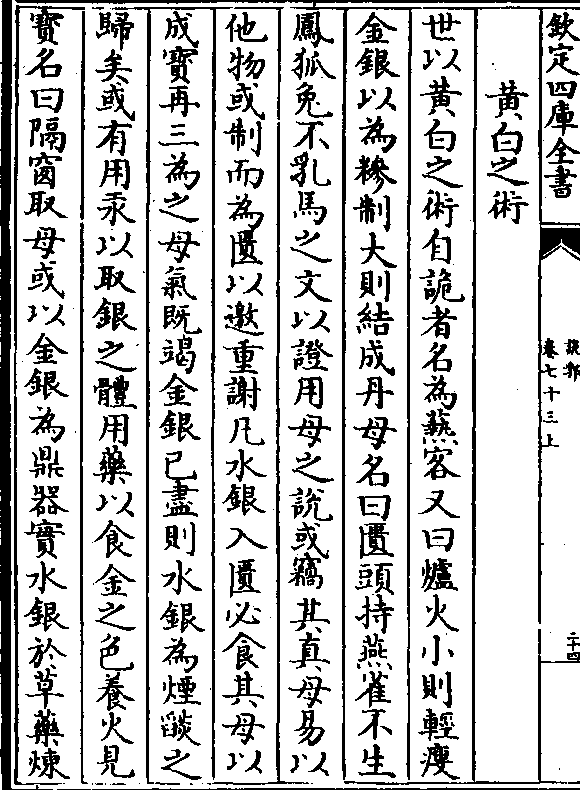 欽定四庫全書
說郛
卷七十三上
二十四
黃白之術
世以黃白之術自詭者名為爇客又曰爐火小則輕瘦
金銀以為糝制大則結成丹母名曰匱頭持燕雀不生
鳳狐兔不乳馬之文以證用母之說或竊其真母易以
他物或制而為匱以邀重謝凡水銀入匱必食其母以
成寳再三為之母氣既竭金銀已盡則水銀為煙燄之
歸矣或有用汞以取銀之體用藥以食金之色養火見
寳名曰隔窗取母或以金銀為鼎器實水銀於草藥煉